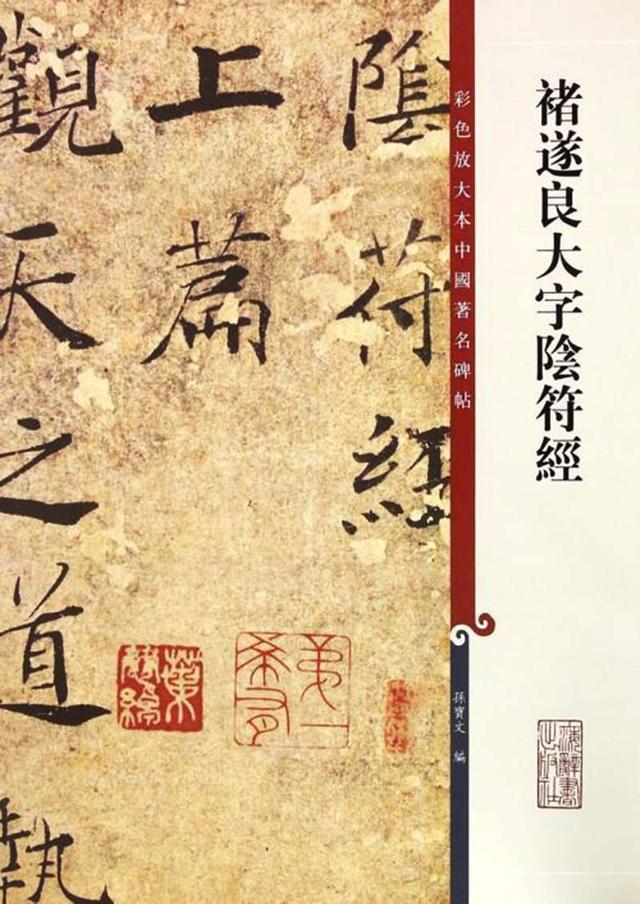 褚遂良大字陰符經
彩色放大本中國著名碑帖
孫寶文 編
陰符經
上篇
觀天之道執